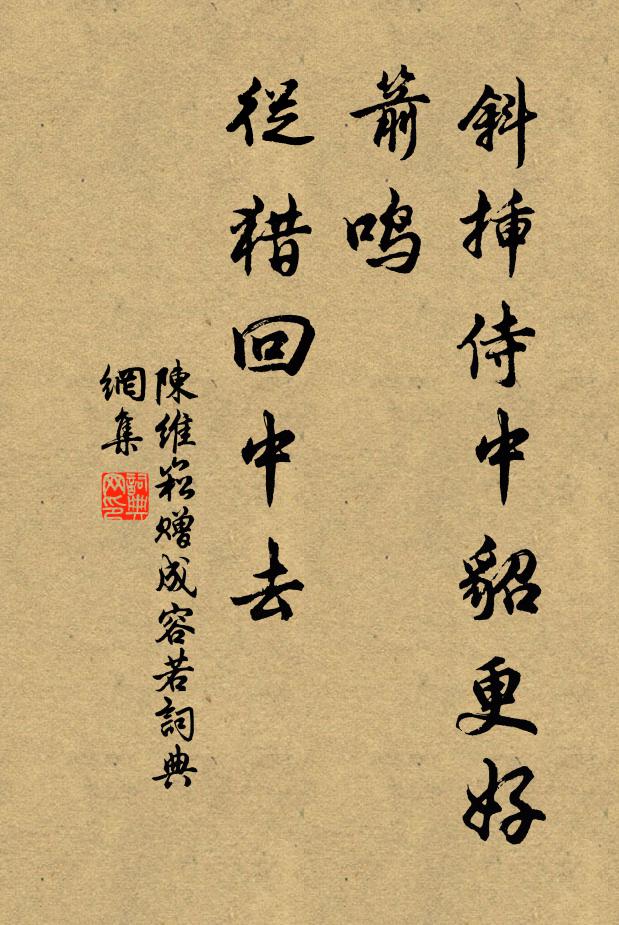 斜挿侍中貂更好
箭鸣
從猎回中去
陳維崧赠成容若詞典
網集
詞典
网印